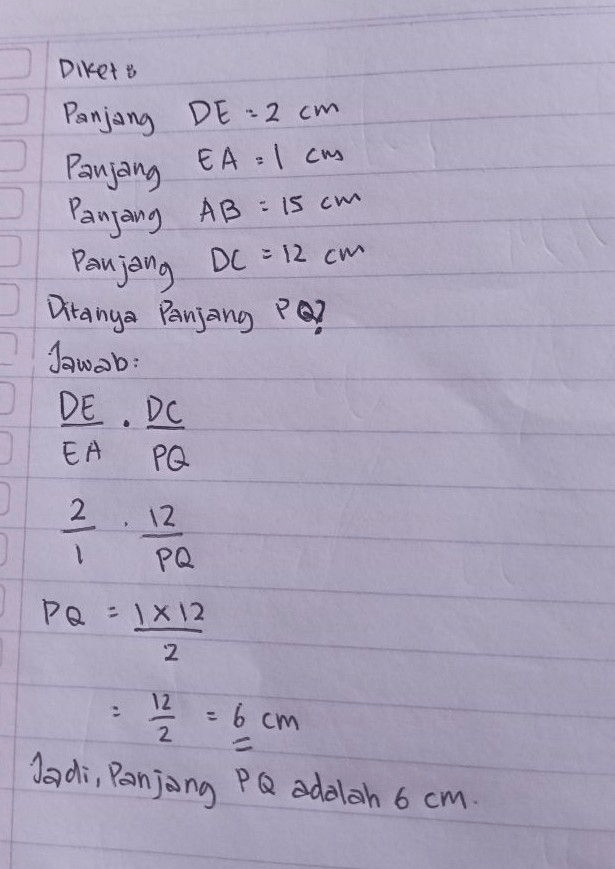 Diket :
Panjang DE = 2 cm
Panjang EA = 1 cm
Panjang AB = 15 cm
Panjang DC = 12 cm
Ditanya Panjang PQ?
Jawab:
DE . DC
EA PQ
2 . 12
1 PQ
PQ = 1 x 12
2
= 12/2 = 6 cm
Jadi, Panjang PQ adalah 6 cm.